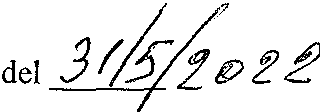 del 31/5/2022